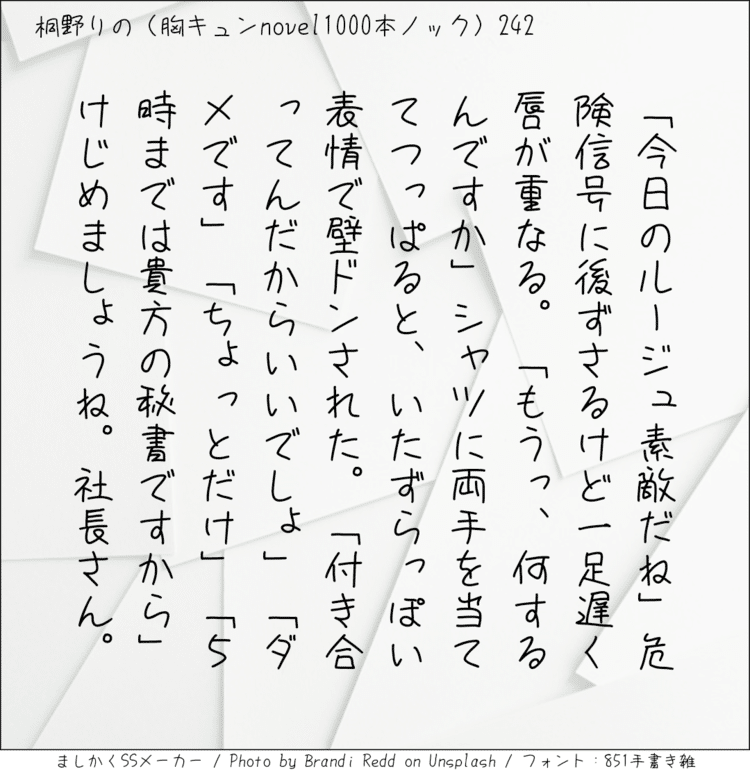 桐野りの（胸キュンnovel1000本ノック）242
「今日のルージュ素敵だね」危
険信号に後ずさるけど一足遅く
唇が重なる。「もうっ、何する
んですか」シャツに両手を当て
てつっぱると、いたずらっぽい
表情で壁ドンされた。「付き合
ってんだからいいでしょ」「ダ
メです」「ちょっとだけ」「5
時までは貴方の秘書ですから」
けじめましょうね。社長さん。
ましかくSSメーカー / Photo by Brandi Redd on Unsplash / フォント：851手書き雑